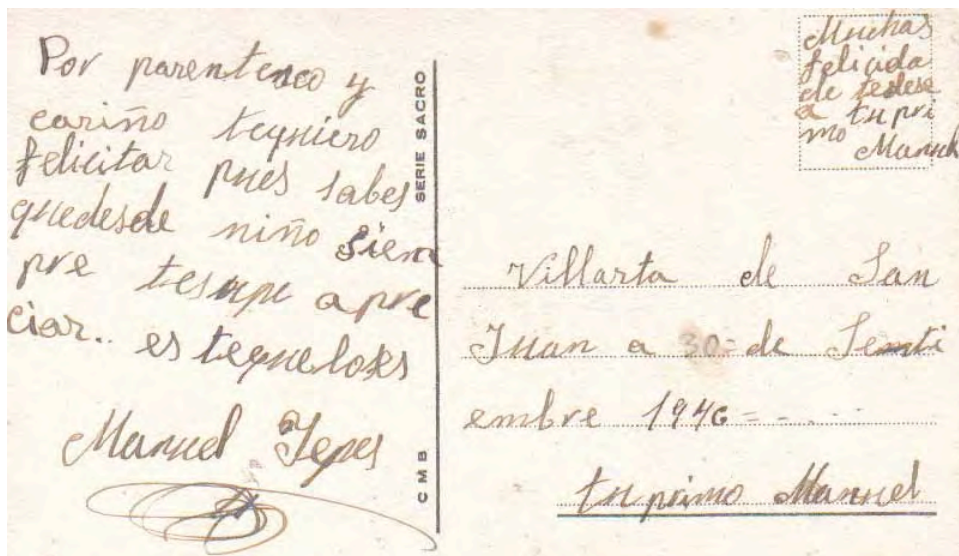 Por parentesco y
cariño tequiero
felicitar pues sabes
quedesde niño siem
pre tesupe apre
ciar.. es teque loses
Manuel Yepes
SERIE SACRO
C M B
Muchas
felicida
de tedese
a tu pri
mo Manuel
Villarta de San
Juan a 30 = de Senti
embre 1946 = - . . . .
tu primo Manuel